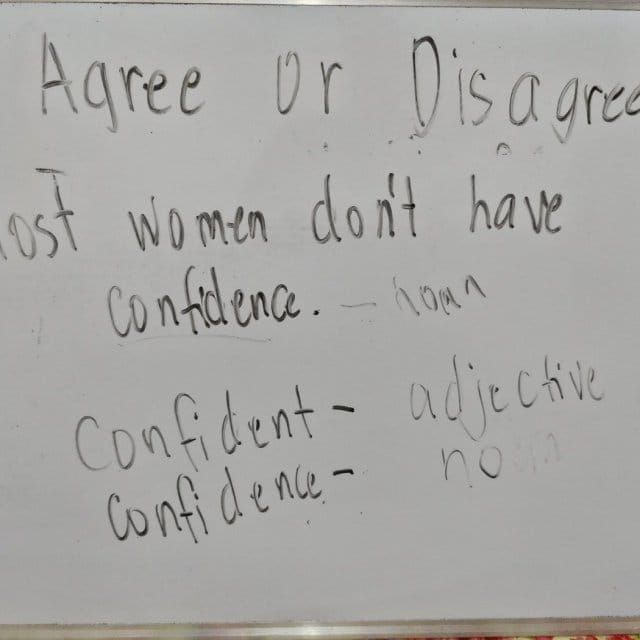 Agree or Disagree
Most women don't have
confidence. – noun
Confident - adjective
confidence - noun